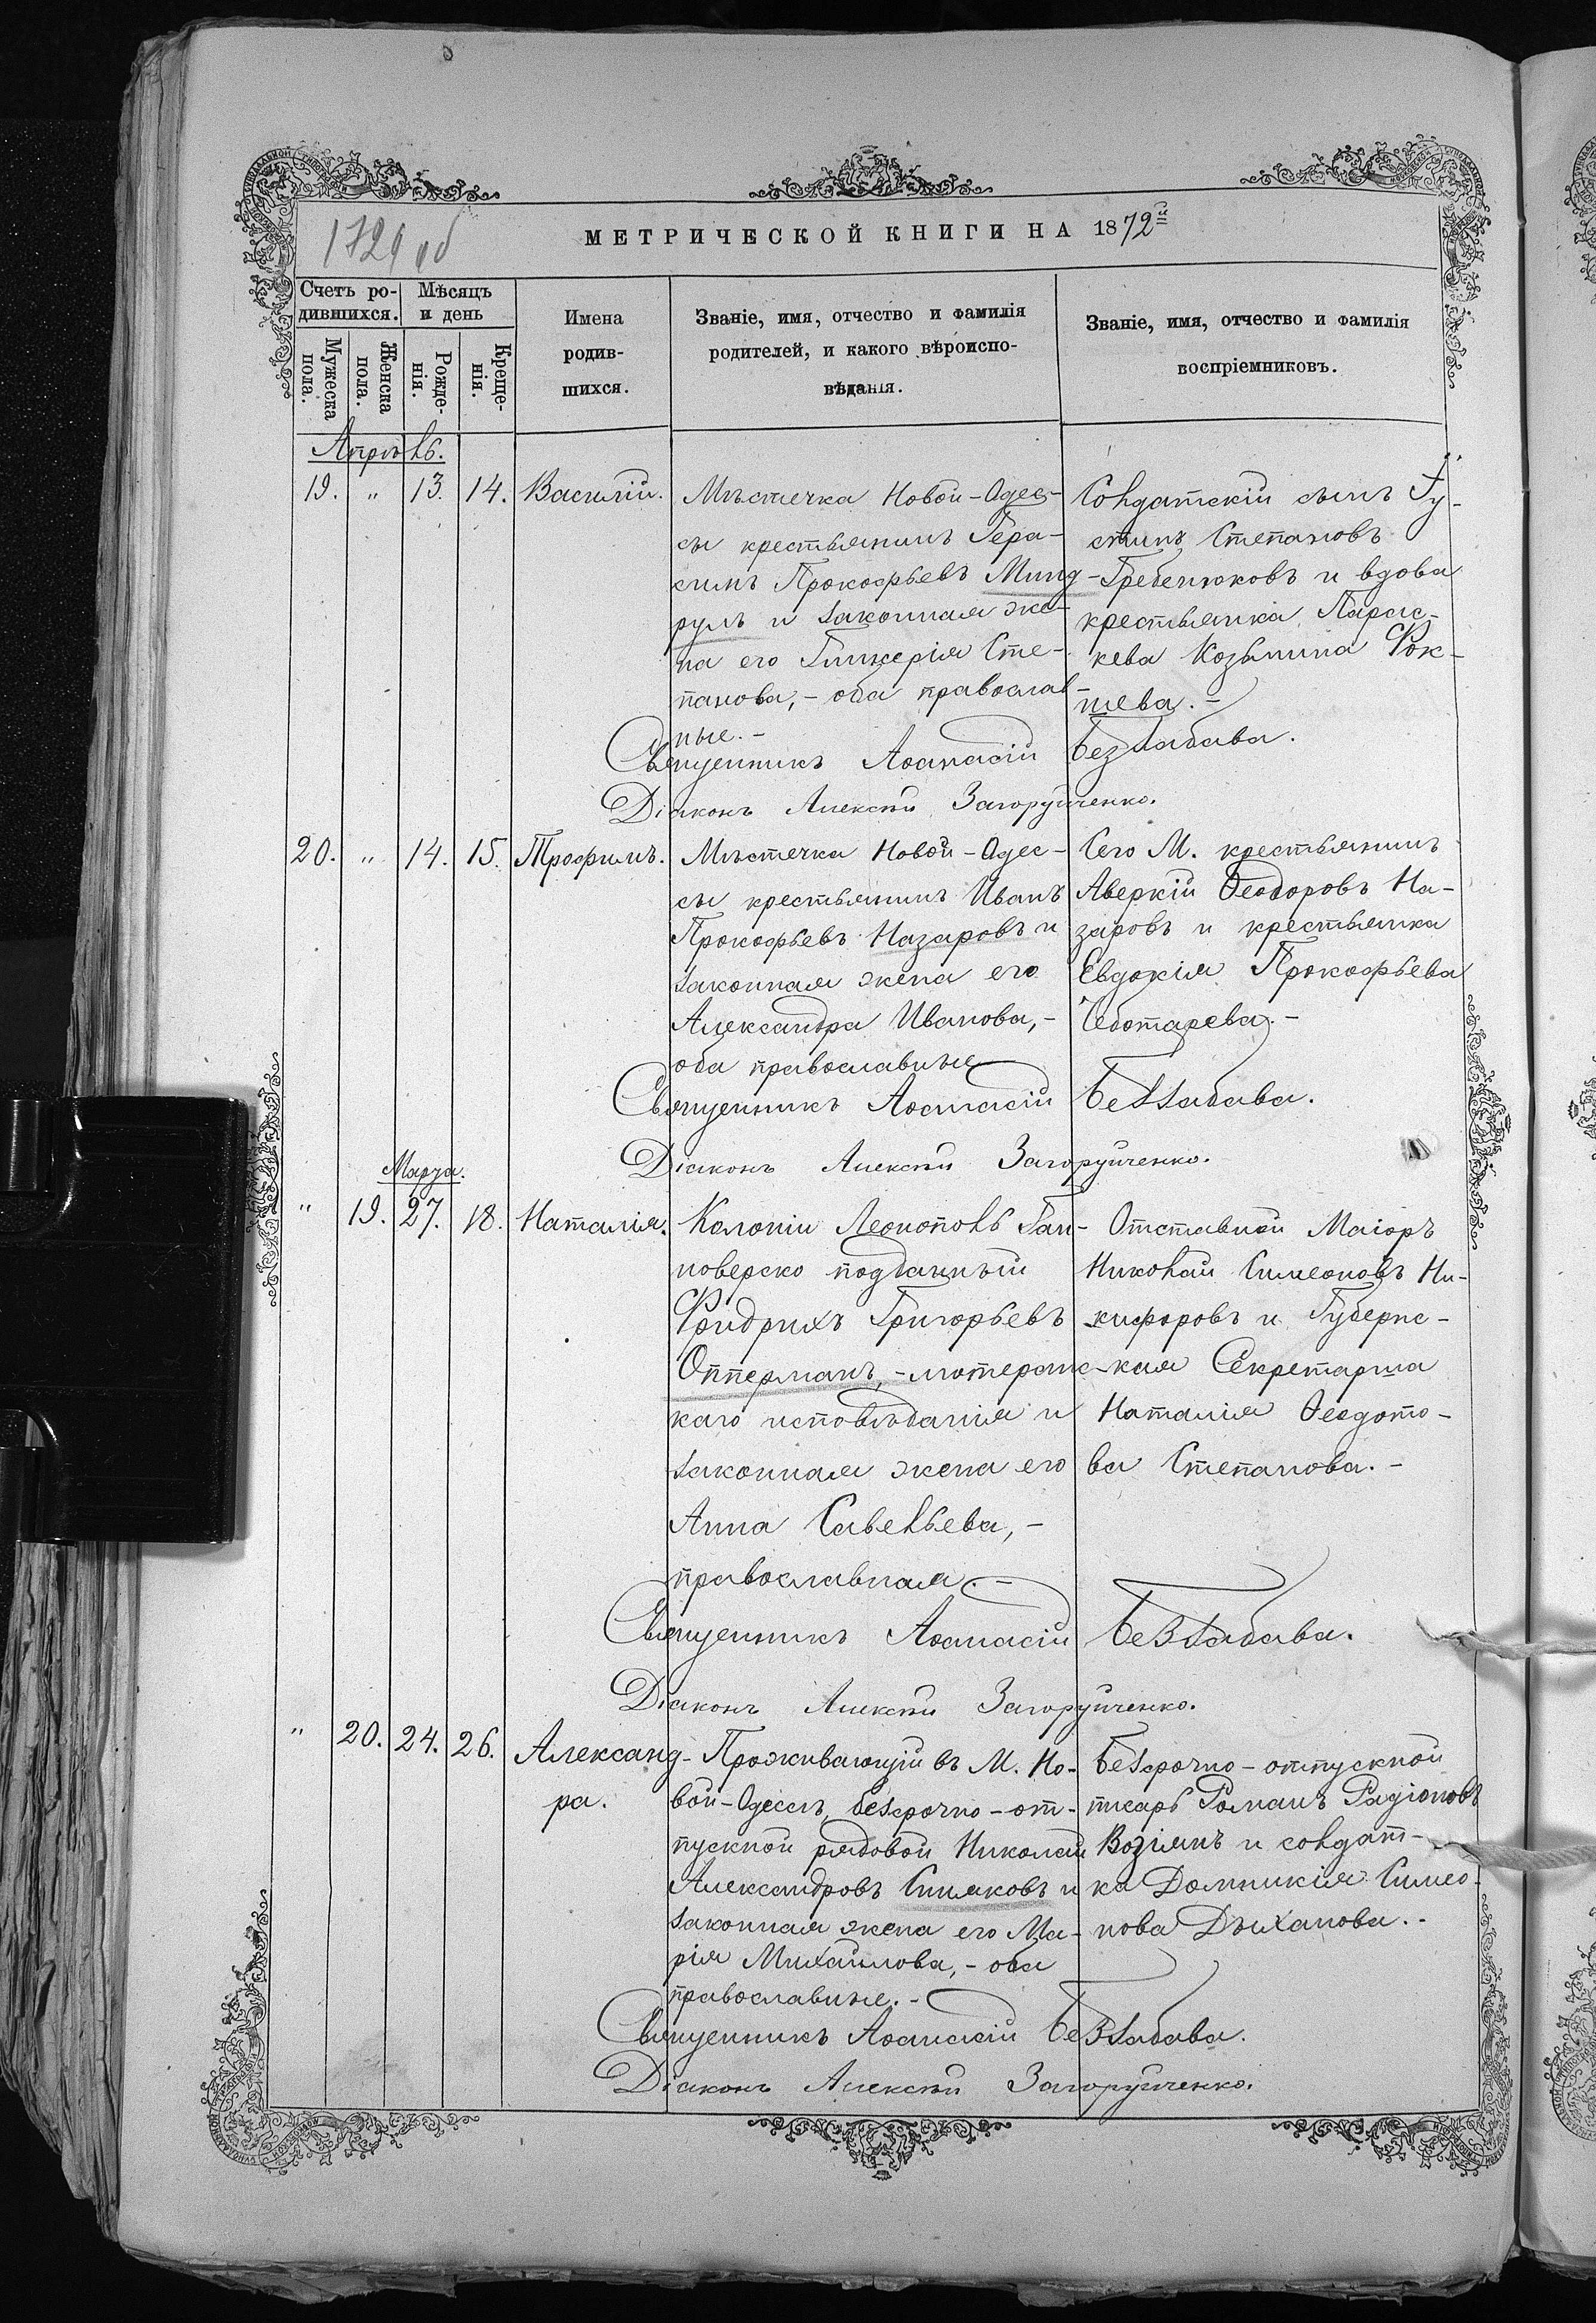 1729 об
МЕТРИЧЕСКОЙ КНИГИ НА 1872й
Счетъ ро-
дившихся.
Мѣсяцъ
и день
Мужеска
пола.
Женска
пола.
Рожде-
нія.
Креще-
нія.
Имена
родив-
шихся.
Званіе, имя, отчество и фамилія
родителей, и какого вѣроиспо-
вѣданія.
Званіе, имя, отчество и фамилія
воспріемниковъ.
Апрѣль.
19. „ 13. 14. Василій.
Мѣстечка Новой-Одес-
сы крестьянинъ Гера-
симъ Прокофьевъ Минд-
руль и законная же-
на его Гликерія Сте-
панова, - оба православ-
ные. -
Солдатскій сынъ Іу-
стинъ Степановъ
Гребенюковъ и вдова
крестьянка Парас-
кева Козьмина Фок-
шева. -
Священникъ Аѳанасій Беззабава.
Діаконъ Алексѣй Загоруйченко.
20. „ 14. 15. Трофимъ.
Мѣстечка Новой-Одес-
сы крестьянинъ Иванъ
Прокофьевъ Назаровъ и
законная жена его
Александра Иванова, -
оба православные
Сего М. крестьянинъ
Аверкій Ѳеодоровъ На-
заровъ и крестьянка
Евдокія Прокофьева
Чеботарева. -
Священникъ Аѳанасій Беззабава.
Діаконъ Алексѣй Загоруйченко.
Марта.
„ 19. 27. 18. Наталія.
Колоніи Леонополь Ган-
новерско подданный
Фридрихъ Григорьевъ
Опперманъ, - лютеранс-
каго исповѣданія и
законная жена его
Анна Савельева, -
православная. -
Отставной Маіоръ
Николай Симеоновъ Ни-
кифоровъ и Губернс-
кая Секретарша
Наталія Ѳеодото-
ва Степанова. -
Священникъ Аѳанасій Беззабава.
Діаконъ Алексѣй Загоруйченко.
„ 20. 24. 26. Александ-
ра.
Проживающій въ М. Но-
вой-Одессѣ безсрочно-от-
пускной рядовой Николай
Александровъ Синяковъ и
законная жена его Ма-
рія Михайлова, - оба
православные. -
Безсрочно-отпускной
писарь Романъ Радіоновъ
Возіянъ и солдат-
ка Домникія Симео-
нова Дыханова. -
Священникъ Аѳанасій Беззабава.
Діаконъ Алексѣй Загоруйченко.